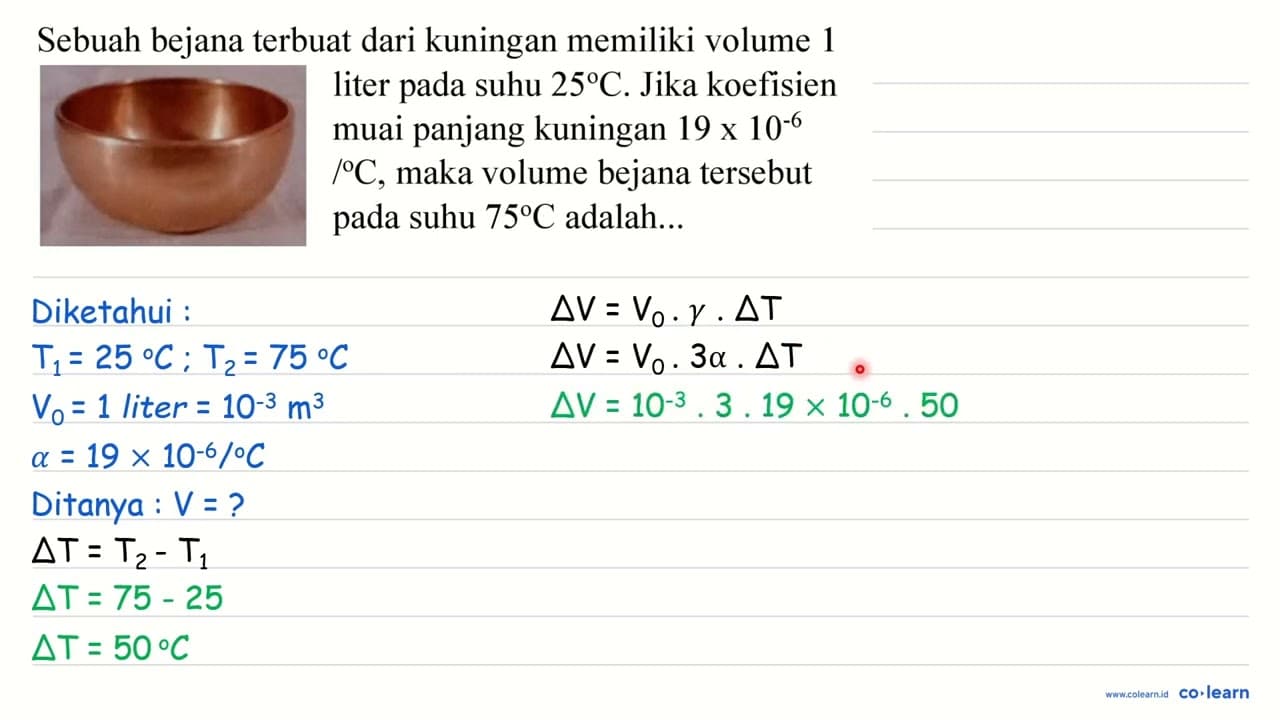 Sebuah bejana terbuat dari kuningan memiliki volume 1
liter pada suhu 25°C. Jika koefisien
muai panjang kuningan 19 x 10⁻⁶
/°C, maka volume bejana tersebut
pada suhu 75°C adalah...
Diketahui :
T₁ = 25 °C ; T₂ = 75 °C
V₀ = 1 liter = 10⁻³ m³
α = 19 × 10⁻⁶/°C
Ditanya : V = ?
ΔT = T₂ - T₁
ΔT = 75 - 25
ΔT = 50 °C
ΔV = V₀ . γ . ΔT
ΔV = V₀ . 3α . ΔT
ΔV = 10⁻³ . 3 . 19 × 10⁻⁶ . 50
www.colearn.id co·learn